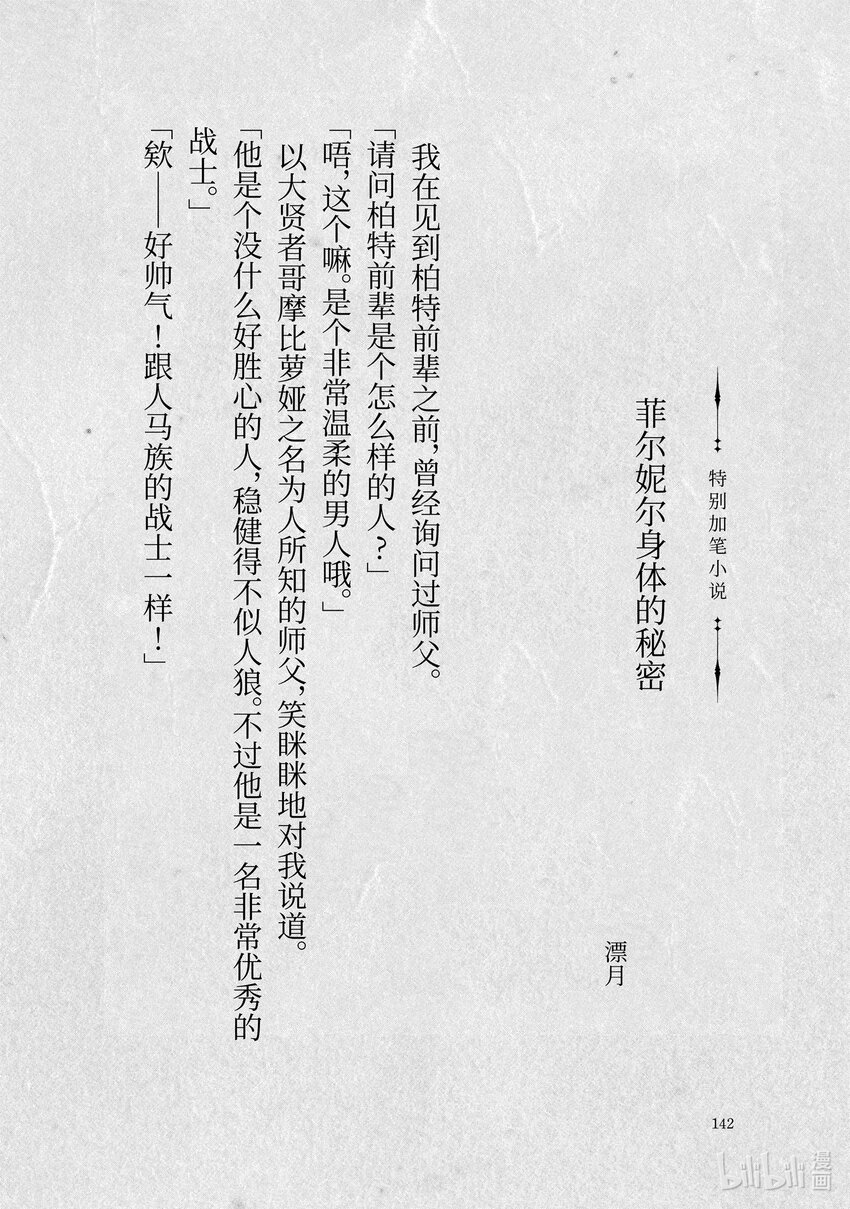 特别加笔小说
菲尔妮尔身体的秘密
漂月
我在见到柏特前辈之前，曾经询问过师父。
「请问柏特前辈是个怎么样的人？」
「唔，这个嘛。是个非常温柔的男人哦。」
以大贤者哥摩比萝娅之名为人所知的师父，笑眯眯地对我说道。
「他是个没什么好胜心的人，稳健得不似人狼。不过他是一名非常优秀的
战士。」
「欸——好帅气！跟人马族的战士一样！」
142
bilibili漫画